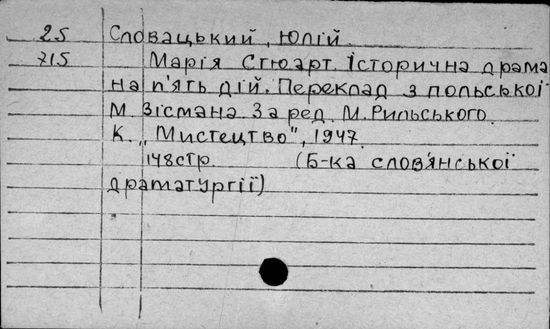 25 Словацький, Юлій.
715 Марія Стюарт. Історична драма
на п'ять дій. Переклад з польської
М. Зісмана. За ред. М. Рильського.
К. "Мистецтво", 1947.
148стр. (Б-ка слов'янської
драматургії)